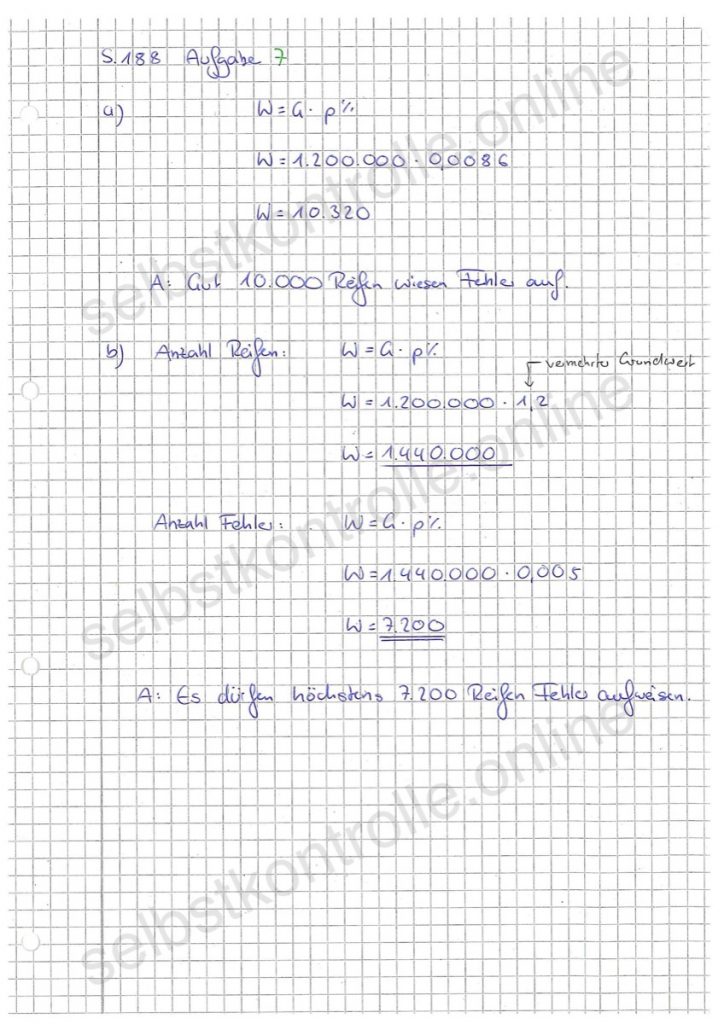 S.188 Aufgabe 7
a) W = G · p%
W = 1.200.000 · 0,0086
W = 10.320
A: Gut 10.000 Reifen wiesen Fehler auf.
b) Anzahl Reifen: W = G · p%
vermehrter Grundwert
W = 1.200.000 · 1,2
W = 1.440.000
Anzahl Fehler: W = G · p%
W = 1.440.000 · 0,005
W = 7.200
A: Es dürfen höchstens 7.200 Reifen Fehler aufweisen.
selbstkontrolle.online
selbstkontrolle.online
selbstkontrolle.online